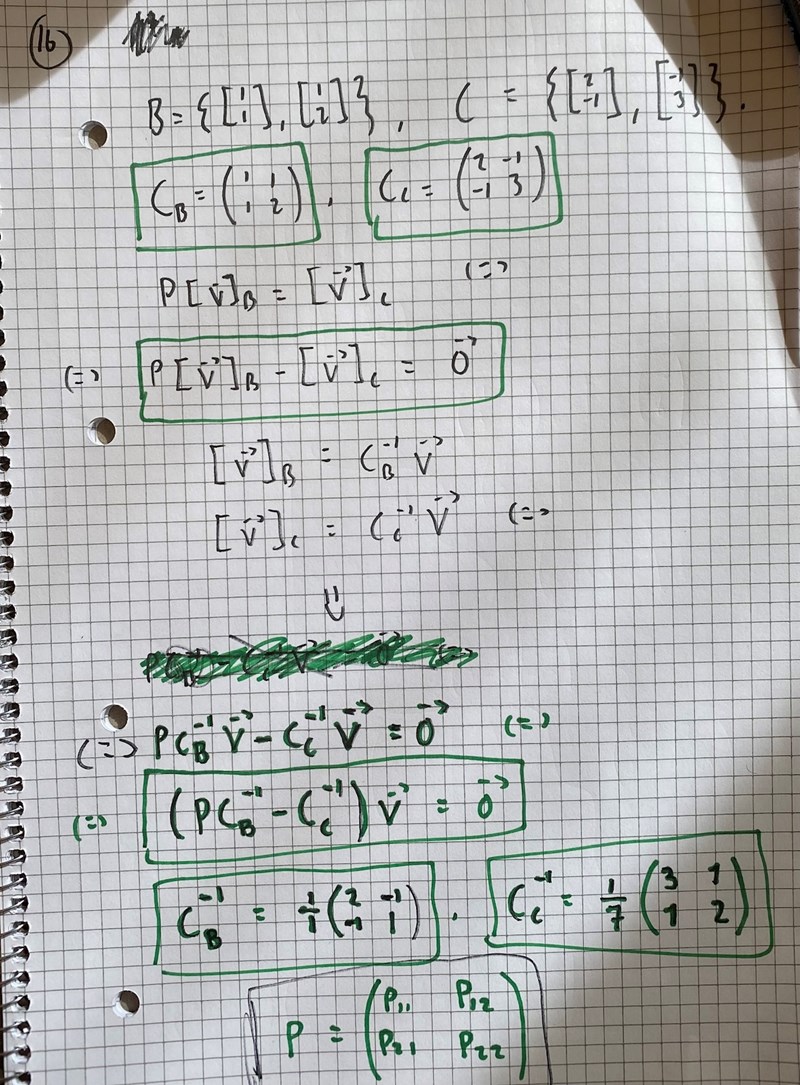 16
B = {[1 1], [1 2]}, C = {[2 -1], [-1 3]}.
C_B = (1 1 / 1 2), C_C = (2 -1 / -1 3)
P[v⃗]_B = [v⃗]_C (=>
(=> P[v⃗]_B - [v⃗]_C = 0⃗
[v⃗]_B = C_B^-1 v⃗
[v⃗]_C = C_C^-1 v⃗ (=>
(=> PC_B^-1 v⃗ - C_C^-1 v⃗ = 0⃗ (=>
(=> (PC_B^-1 - C_C^-1) v⃗ = 0⃗
C_B^-1 = 1/1 (2 -1 / -1 1), C_C^-1 = 1/7 (3 1 / 1 2)
P = (P_11 P_12 / P_21 P_22)